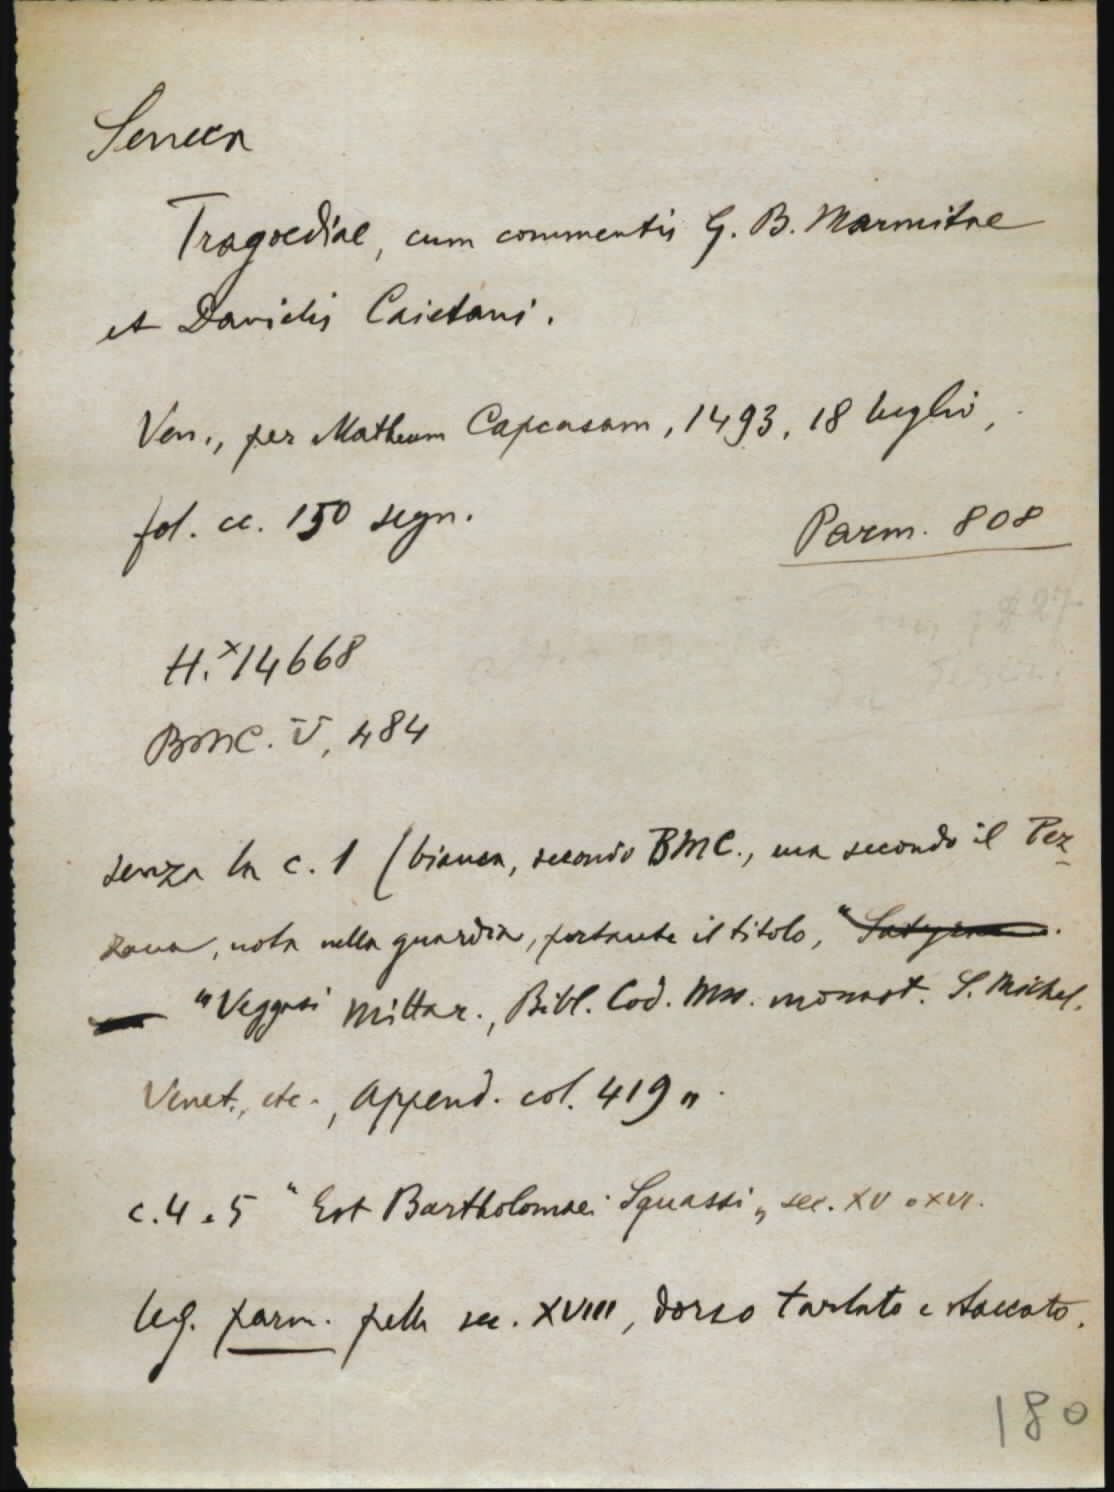 Seneca
Tragoediae, cum commentis G. B. Marmitae
et Danielis Caietani.
Ven., per Matheum Capcasam, 1493, 18 luglio,
fol. cc. 150 segn.
Parm. 808
H.ˣ14668
BMC. V, 484
senza la c. 1 (bianca, secondo BMC., ma secondo il Pez-
zana, nota nella guardia, portante il titolo, "Satyrae
"Veggasi Mittar., Bibl. Cod. Mss. monast. S. Michel.
Venet., etc., Append. col. 419".
c. 4 e 5 "Est Bartholomaei Squassi" sec. XV o XVI.
leg. parm. pelle sec. XVIII, dorso tarlato e staccato.
180